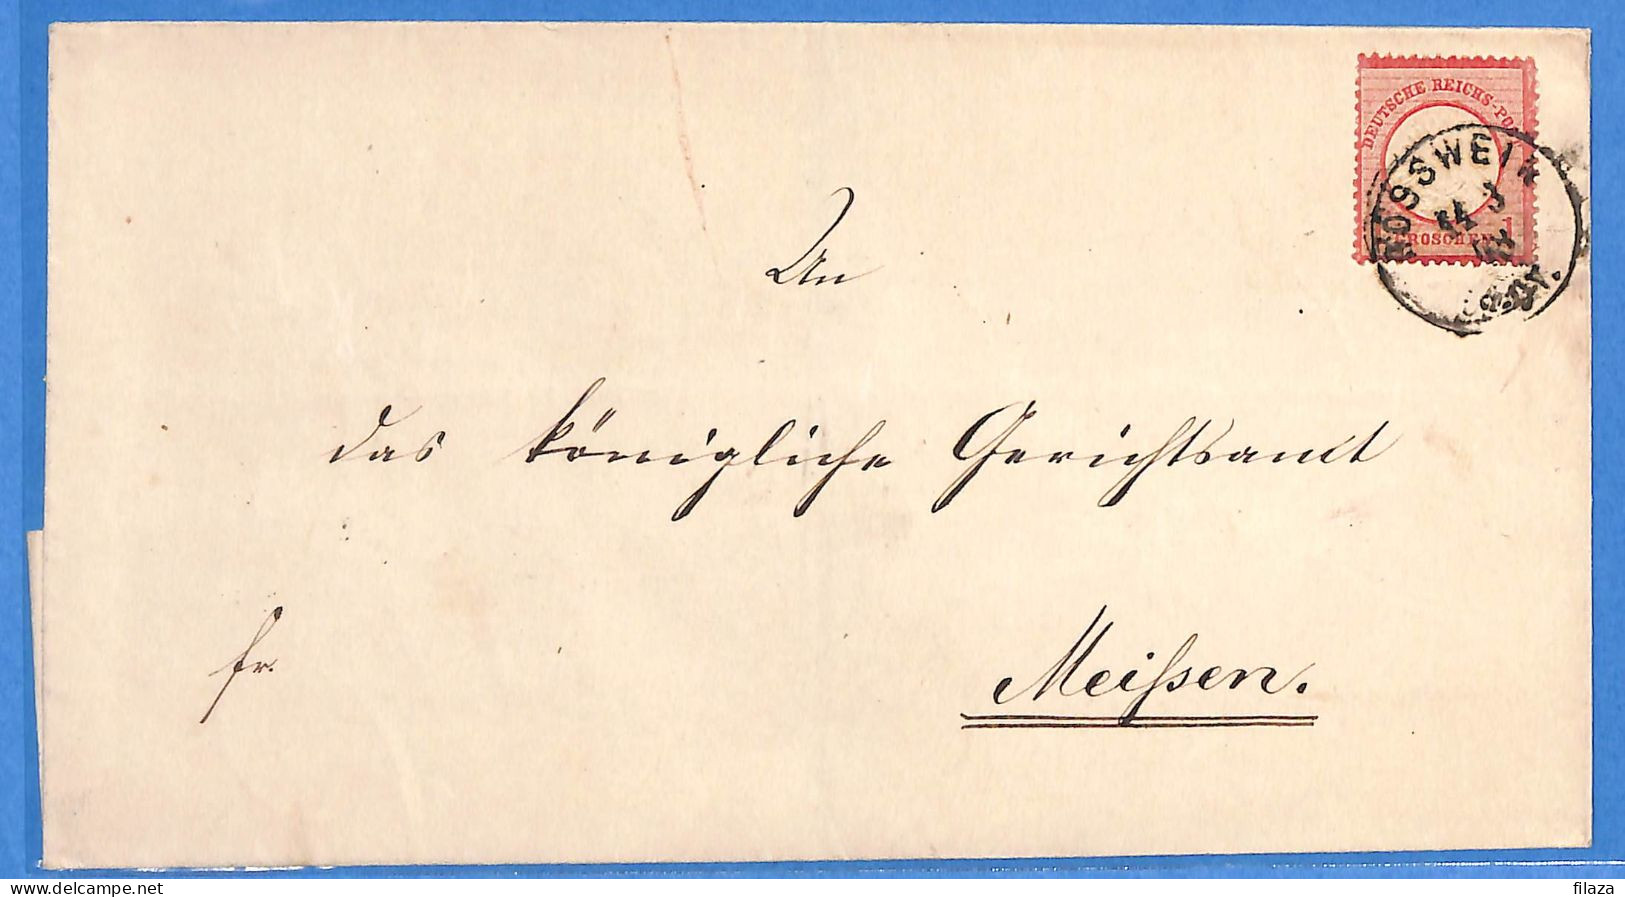 DEUTSCHE REICHS-PO
ROSSWEIN
GROSCHEN
An
das königliche Gerichtsamt
fr.
Meißen.
delcampe.net
filaza